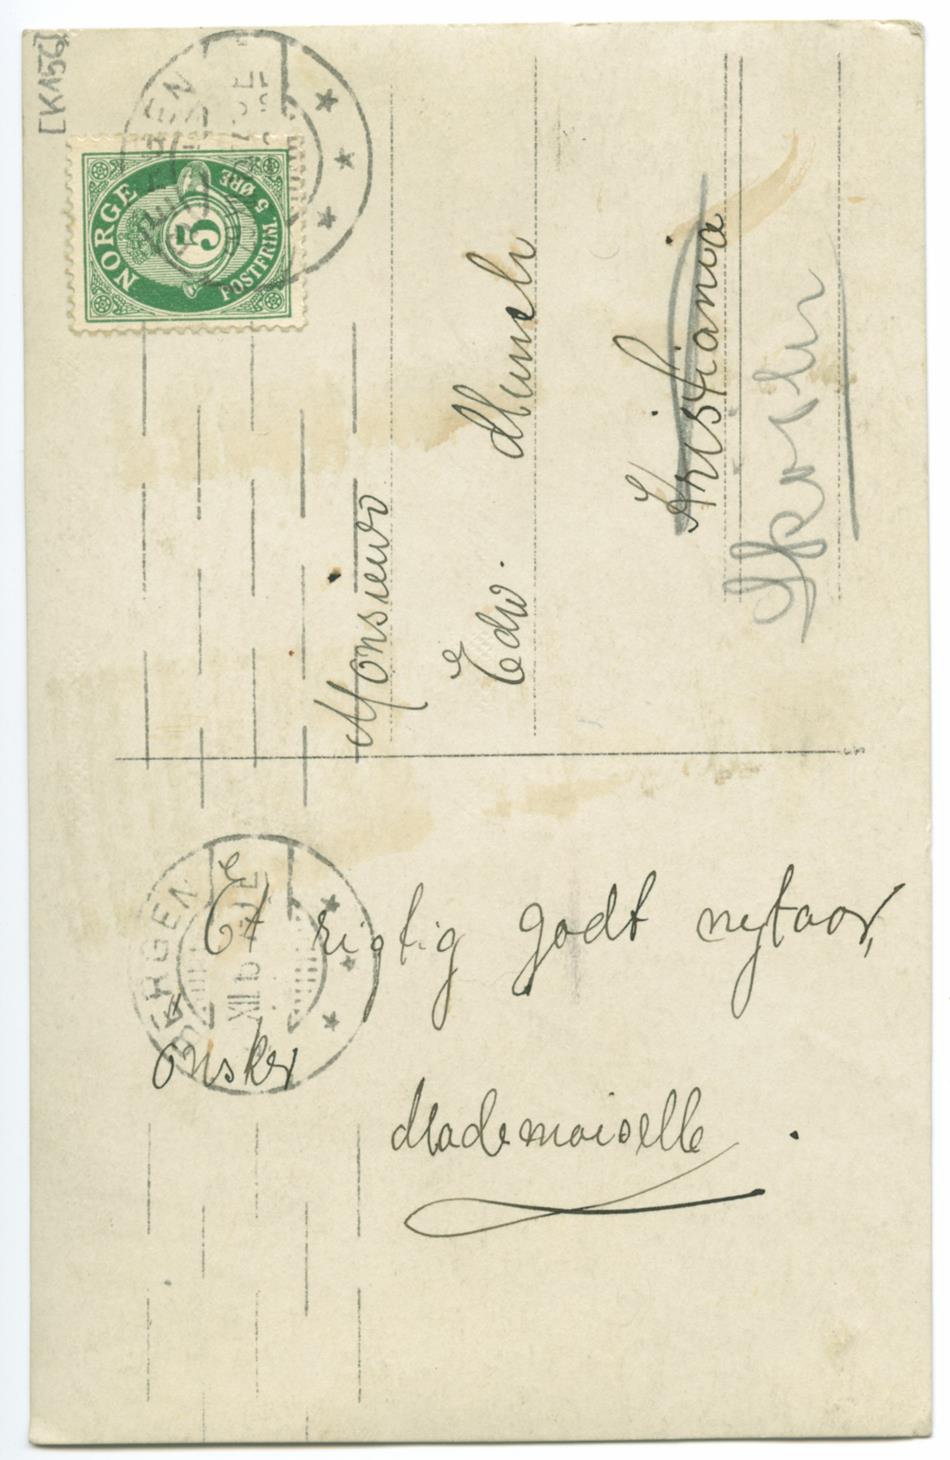 [K156]
NORGE
5
POSTFRIM. 5 ØRE
Monsieur
Edv. Munch
Kristiania
BERGEN
Et rigtig godt nytaar,
önsker
Mademoiselle.